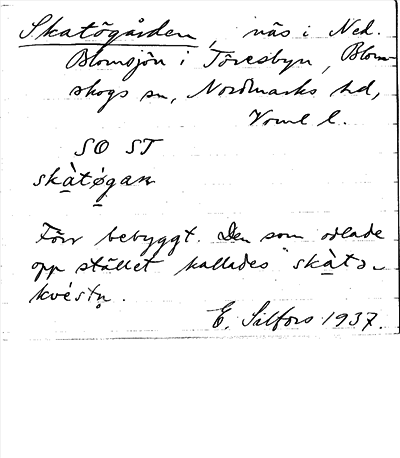 Skatögården, näs i Ned.
Blomsjön i Töresbyn, Blom-
skogs sn, Nordmarks hd,
Vrml l.
SO ST
skà̱tø̱gan
Förr bebyggt. Den som odlade
opp stället kallades "skà̱tɔ-
kvéstn̥.
E. Silfors 1937.